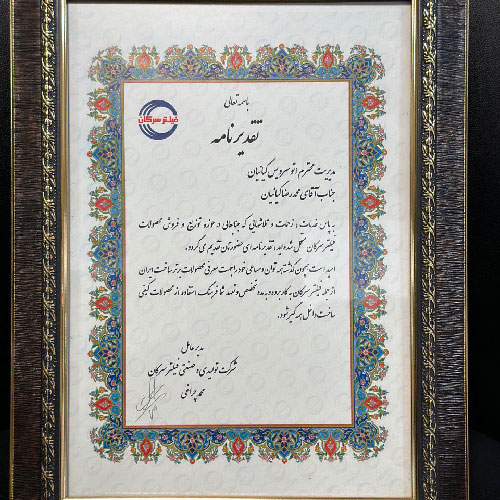 باسمه تعالی
فیلتر سرکان
تقدیرنامه
مدیریت محترم اتو سرویس کیانیان
جناب آقای محمدرضا کیانیان
به پاس خدمات، زحمات و تلاشهایی که جنابعالی در حوزه توزیع و فروش محصولات
فیلتر سرکان متقبل شده اید، تقدیرنامه ای حضورتان تقدیم می گردد.
امید است همچون گذشته همه توان و مساعی خود را جهت معرفی محصولات برتر ساخت ایران
از جمله فیلتر سرکان به کار برده و به مدد تخصص و تعهد شما فرهنگ استفاده از محصولات کیفی
ساخت داخل همه گیر شود.
مدیر عامل
شرکت تولیدی و صنعتی فیلتر سرکان
محمد چراغی